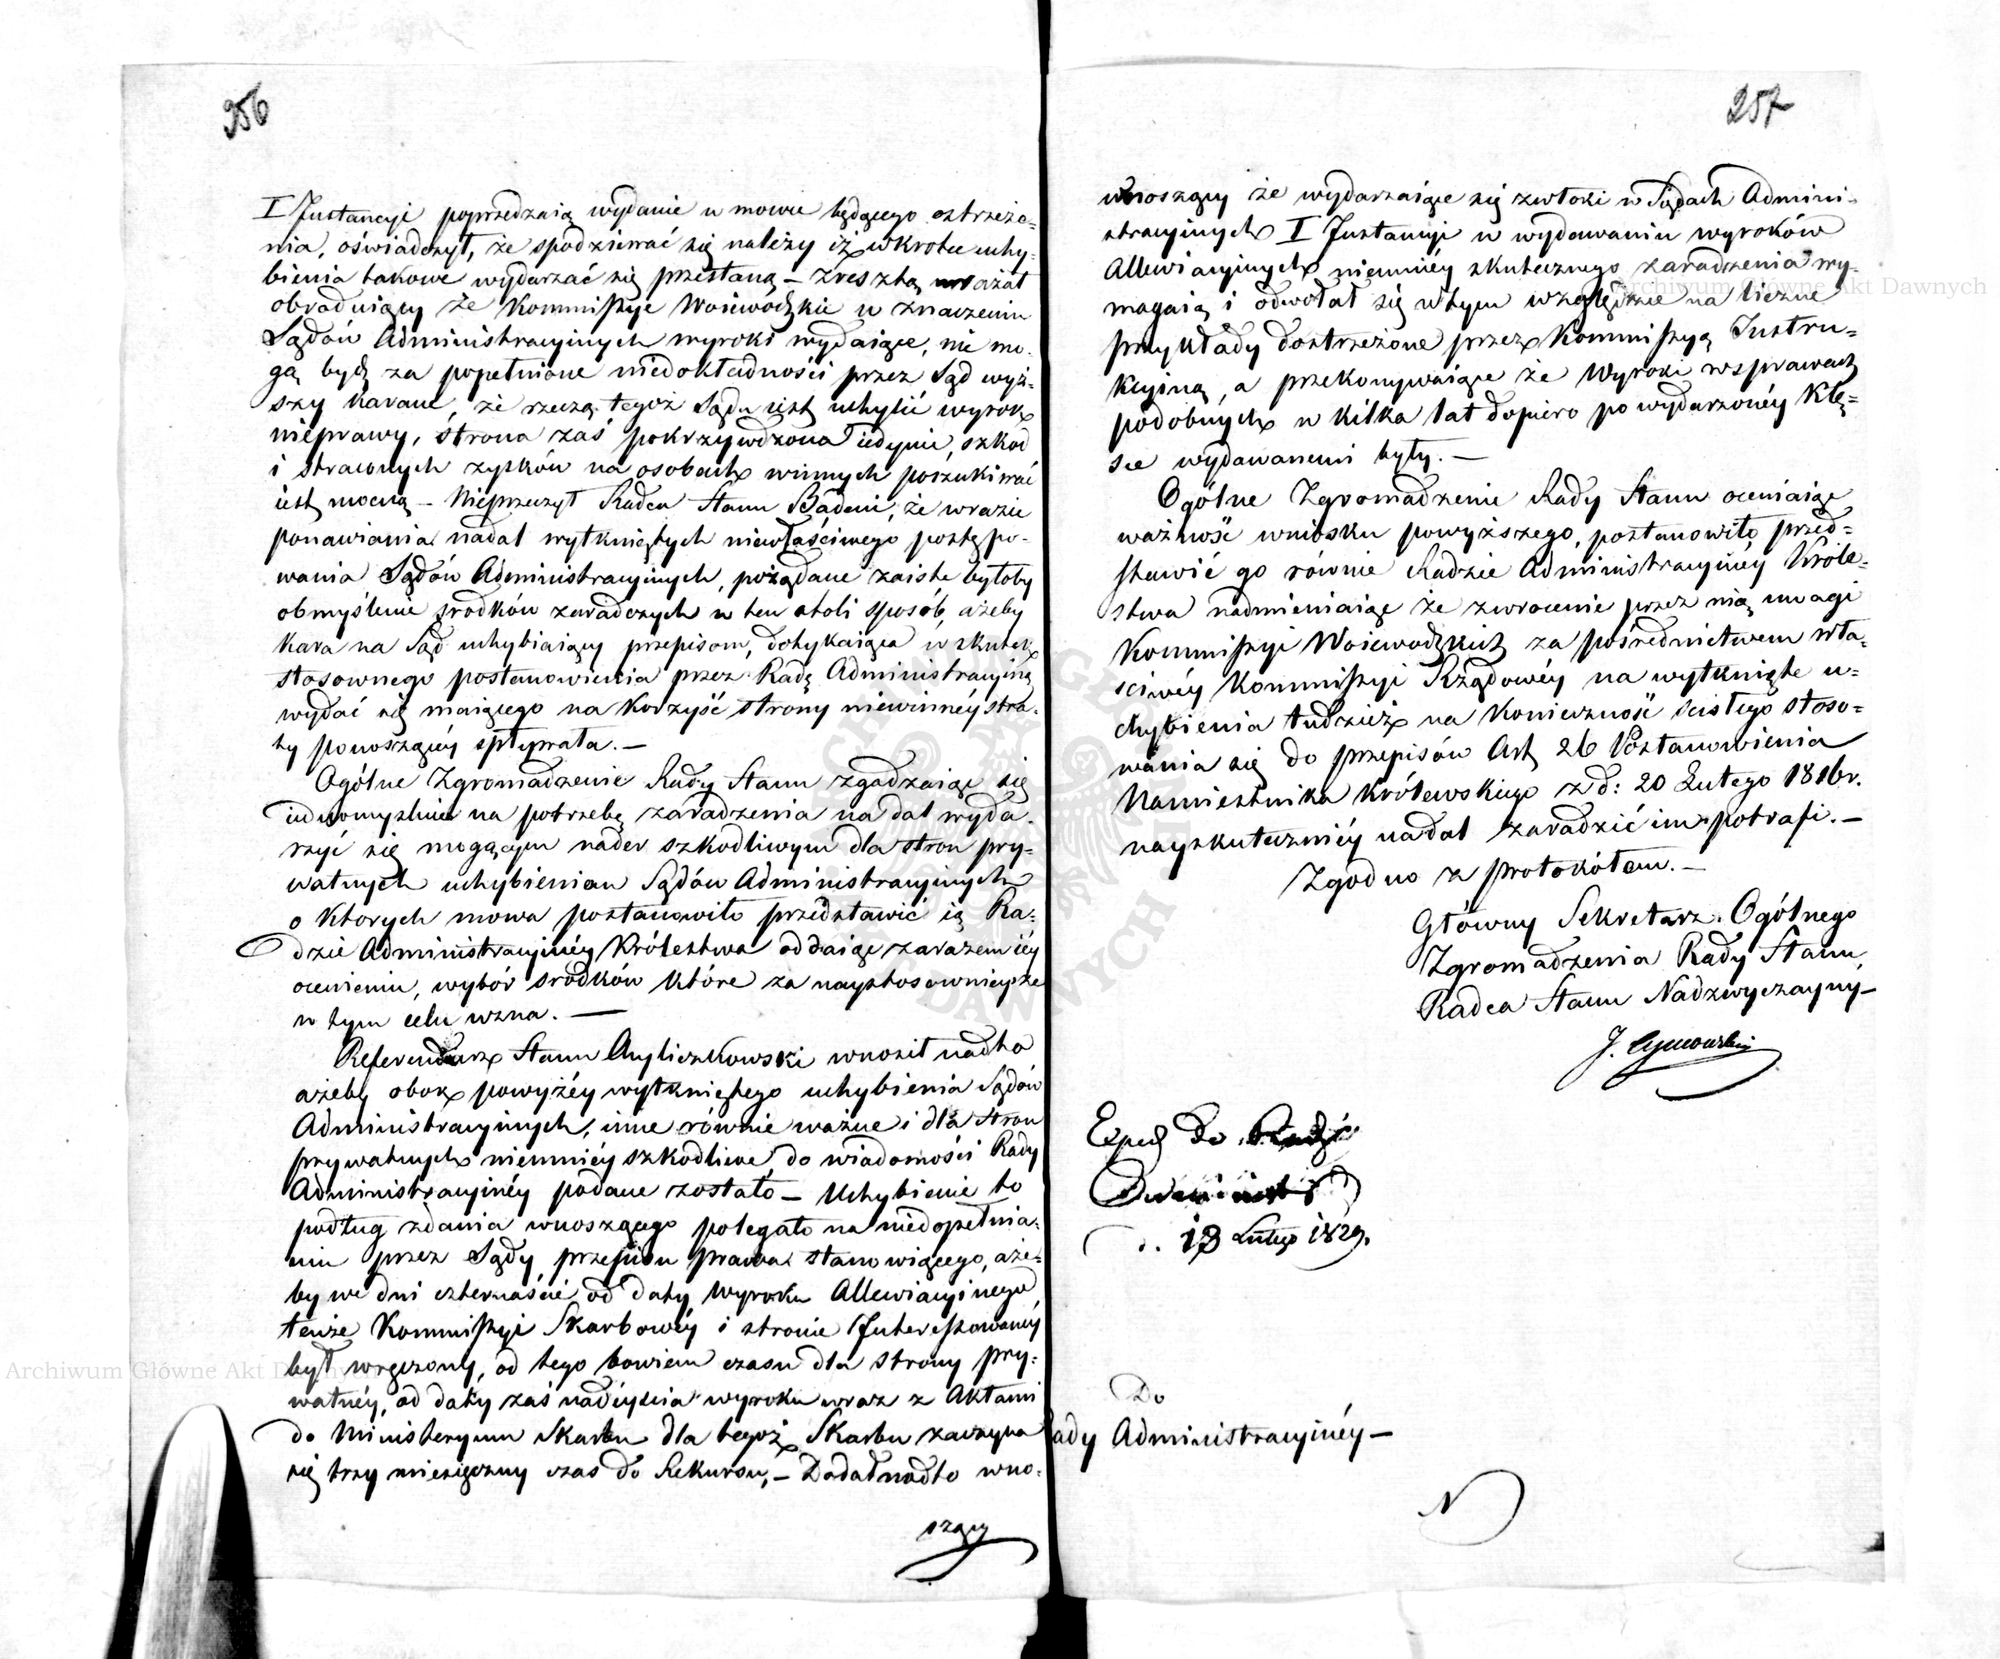 256
I Instancyi poprzedzaią wydanie w mowie będącego ostrzeże=
nia, oświadczył, że spodziewać się należy iż wkrotce uchy=
bienia takowe wydarzać się przestaną – Zresztą uważał
obraduiący że Kommissye Woiewódzkie w znaczeniu
Sądów Administracyinych wyroki wydaiące, nie mo=
gą bydź za popełnione niedokładności przez Sąd wyż=
szy karane, że rzeczą tegoż Sądu iest uchylić wyrok
nieprawy, strona zaś pokrzywdzona iedynie, szkód
i straconych zysków na osobach winnych poszukiwać
iest mocną – Nieprzeczył Radca Stanu Badeni, że wrazie
ponawiania nadal wytkniętych niewłaściwego postępo-
wania Sądów Administracyinych, pożądane zaiste byłoby
obmyślenie srodków zaradczych w ten stoli sposób, ażeby
kara na Sąd uchybiaiący przepisom, dotykaiąca w skutek
stosownego postanowienia przez Radę Administracyiną
wydać się maiącego na korzyść strony niewinnéy stra-
ty ponoszącéy spływała. –
Ogólne Zgromadzenie Rady Stanu zgadzaiąc się
iednomyslnie na potrzebę zaradzenia na dal wyda-
rzyć się mogącym nader szkodliwym dla stron pry=
watnych uchybieniom Sądów Administracyinych
o ktorych mowa postanowiło przedstawić ią Ra=
dzie Administracyinéy Królestwa oddaiąc zarazem iéy
ocenieniu, wybór srodków które za naystosownieysze
w tym celu uzna. –
Referendarz Stanu Angliczkowski wnosił nadto
ażeby obok powyżéy wytkniętego uchybienia Sądów
Administracyinych, inne równie ważne i dla Stron
prywatnych niemniéy szkodliwe, do wiadomości Rady
Administracyinéy podane zostało – Uchybienie to
podług zdania wnoszącego polegało na niedopełnia=
niu przez Sądy przepisu prawa stanowiącego, aże=
by we dni czternaście od daty wyroku Allewiacyinego,
tenże Kommissyi Skarbowéy i stronie Interessowanéy
był wręczony, od tego bowiem czasu dla Strony pry=
watnéy, od daty zaś nadéyscia wyroku wraz z Aktami
do Ministeryum Skarbu dla tegoż Skarbu zaczyna
się trzy miesięczny czas do Rekursu, – Dodał nadto wno-
szący
257
wnoszący że wydarzaiące się zwłoki w Sądach Admini-
stracyinych I Instancyi w wydawaniu wyroków
Allewiacyinych niemniéy skutecznego zaradzenia wy-
magaią i odwołał się w tym względzie na liczne
przykłady dostrzeżone przez Kommissyą Instru=
kcyiną, a przekonywaiące że Wyroki w sprawach
podobnych w kilka lat dopiero po wydarzonéy klę=
sce wydawanemi były. –
Ogólne Zgromadzenie Rady Stanu oceniaiąc
ważność wniosku powyższego, postanowiło przed=
stawić go równie Radzie Administracyinéy Króle=
stwa nadmieniaiąc że zwrocenie przez nią uwagi
Kommissyi Woiewodzkich za pośrednictwem wła-
sciwéy Kommissyi Rządowéy na wytknięte u=
chybienia tudzież na konieczność scisłego stoso=
wania się do przepisów Art 26 Postanowienia
Namiestnika Królewskiego z d: 20 Lutego 1816 r.
nayskuteczniéy nadal zaradzić im potrafi. –
Zgodno z protokółem. –
Główny Sekretarz Ogólnego
Zgromadzenia Rady Stanu,
Radca Stanu Nadzwyczayny –
Exped do Rady
Administ
d. 13 Lutego 1829.
Do
ady Administracyinéy –
N
Archiwum Główne Akt Dawnych
Archiwum Główne Akt Dawnych